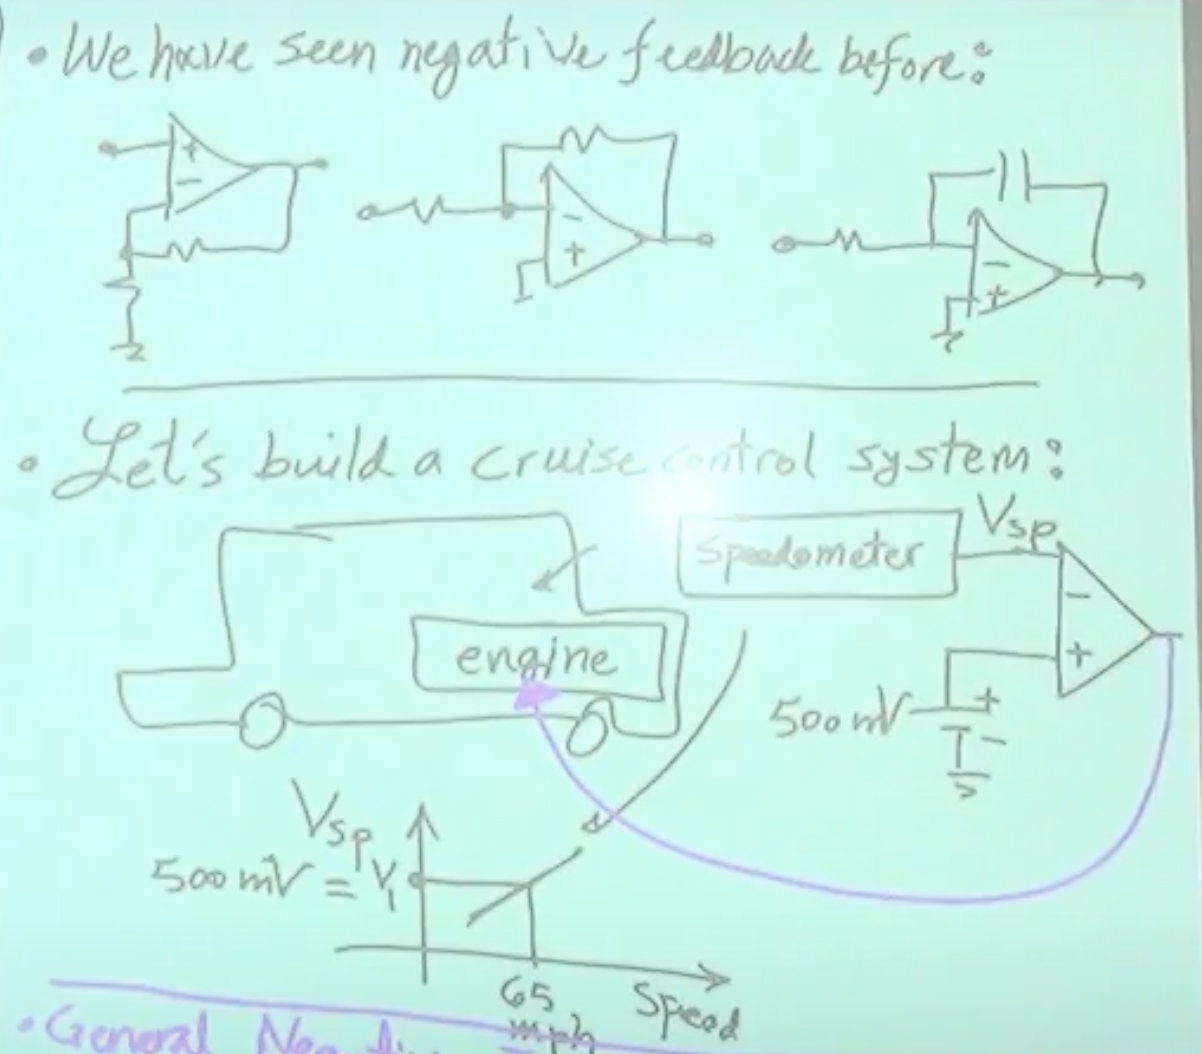 • We have seen negative feedback before:
+
−
−
+
−
+
• Let's build a cruise control system:
Speedometer
Vsp
−
+
engine
500 mV
+
−
Vsp
500 mV = V1
65
mph
Speed
• General